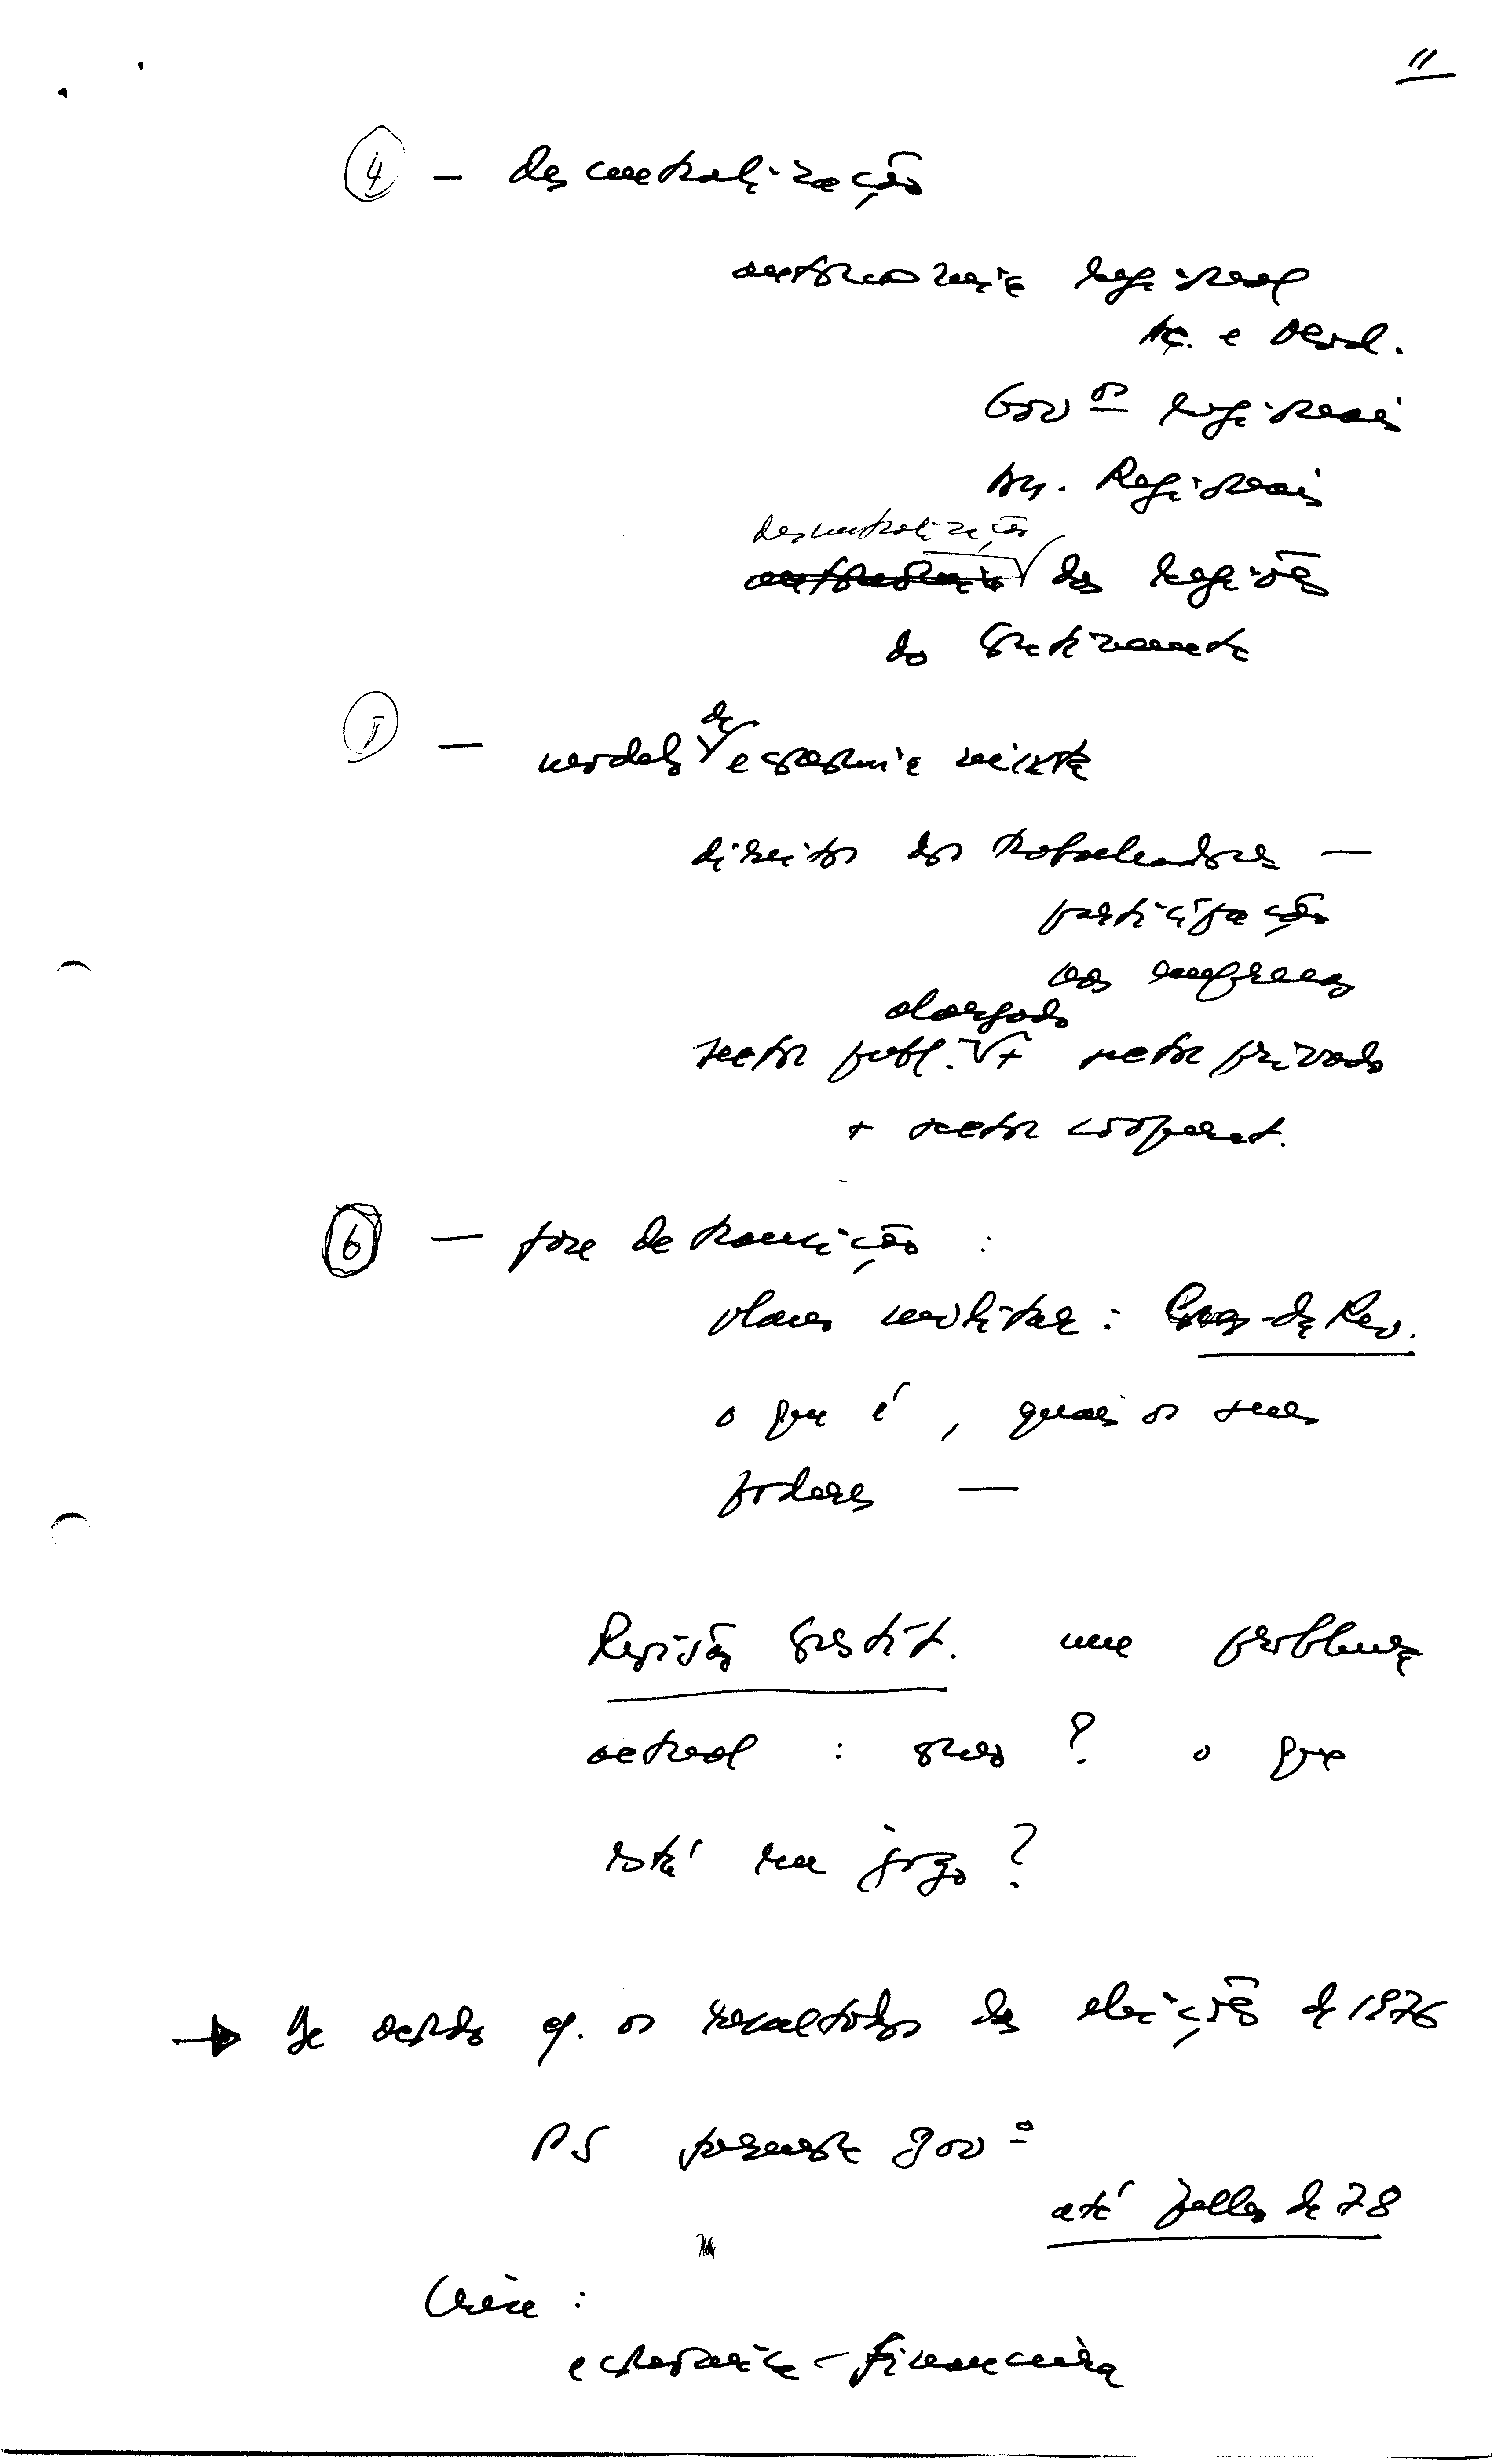 11
4 — descentralização
autonomia regional
Aç. e Mad.
Gov os regionais
Ass. Regionais
descentralização
autonomia das regiões
do Continente
5 — modelo de economia mixta
direitos dos trabalhadores —
participação
nas empresas
alargado
sector publ. + sector privado
+ sector cooperat.
6 — fase de transição :
plano militar : Cons. da Rev.
o que é, quais os seus
poderes —
Revisão Constit. um problema
actual : como ? o que
está em jogo ?
→ De acordo c/. os resultados das eleições de 1976
PS formou gov º
até Julho de 78
Crise :
economica - financeira